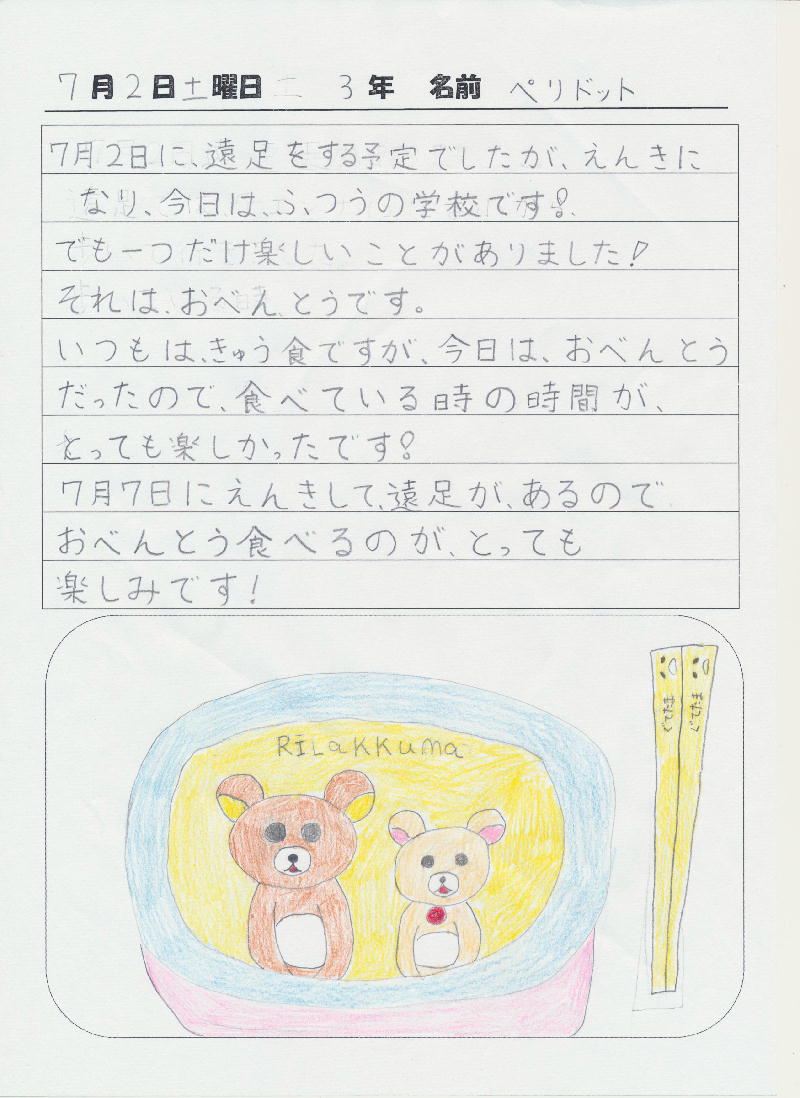 7月2日土曜日 3年 名前 ペリドット
7月2日に、遠足をする予定でしたが、えんきに
なり、今日は、ふつうの学校です!
でも一つだけ楽しいことがありました!
それは、おべんとうです。
いつもは、きゅう食ですが、今日は、おべんとう
だったので、食べている時の時間が、
とっても楽しかったです!
7月7日にえんきして、遠足が、あるので
おべんとう食べるのが、とっても
楽しみです!
RiLaKKuma
ぐでたま
ぐでたま